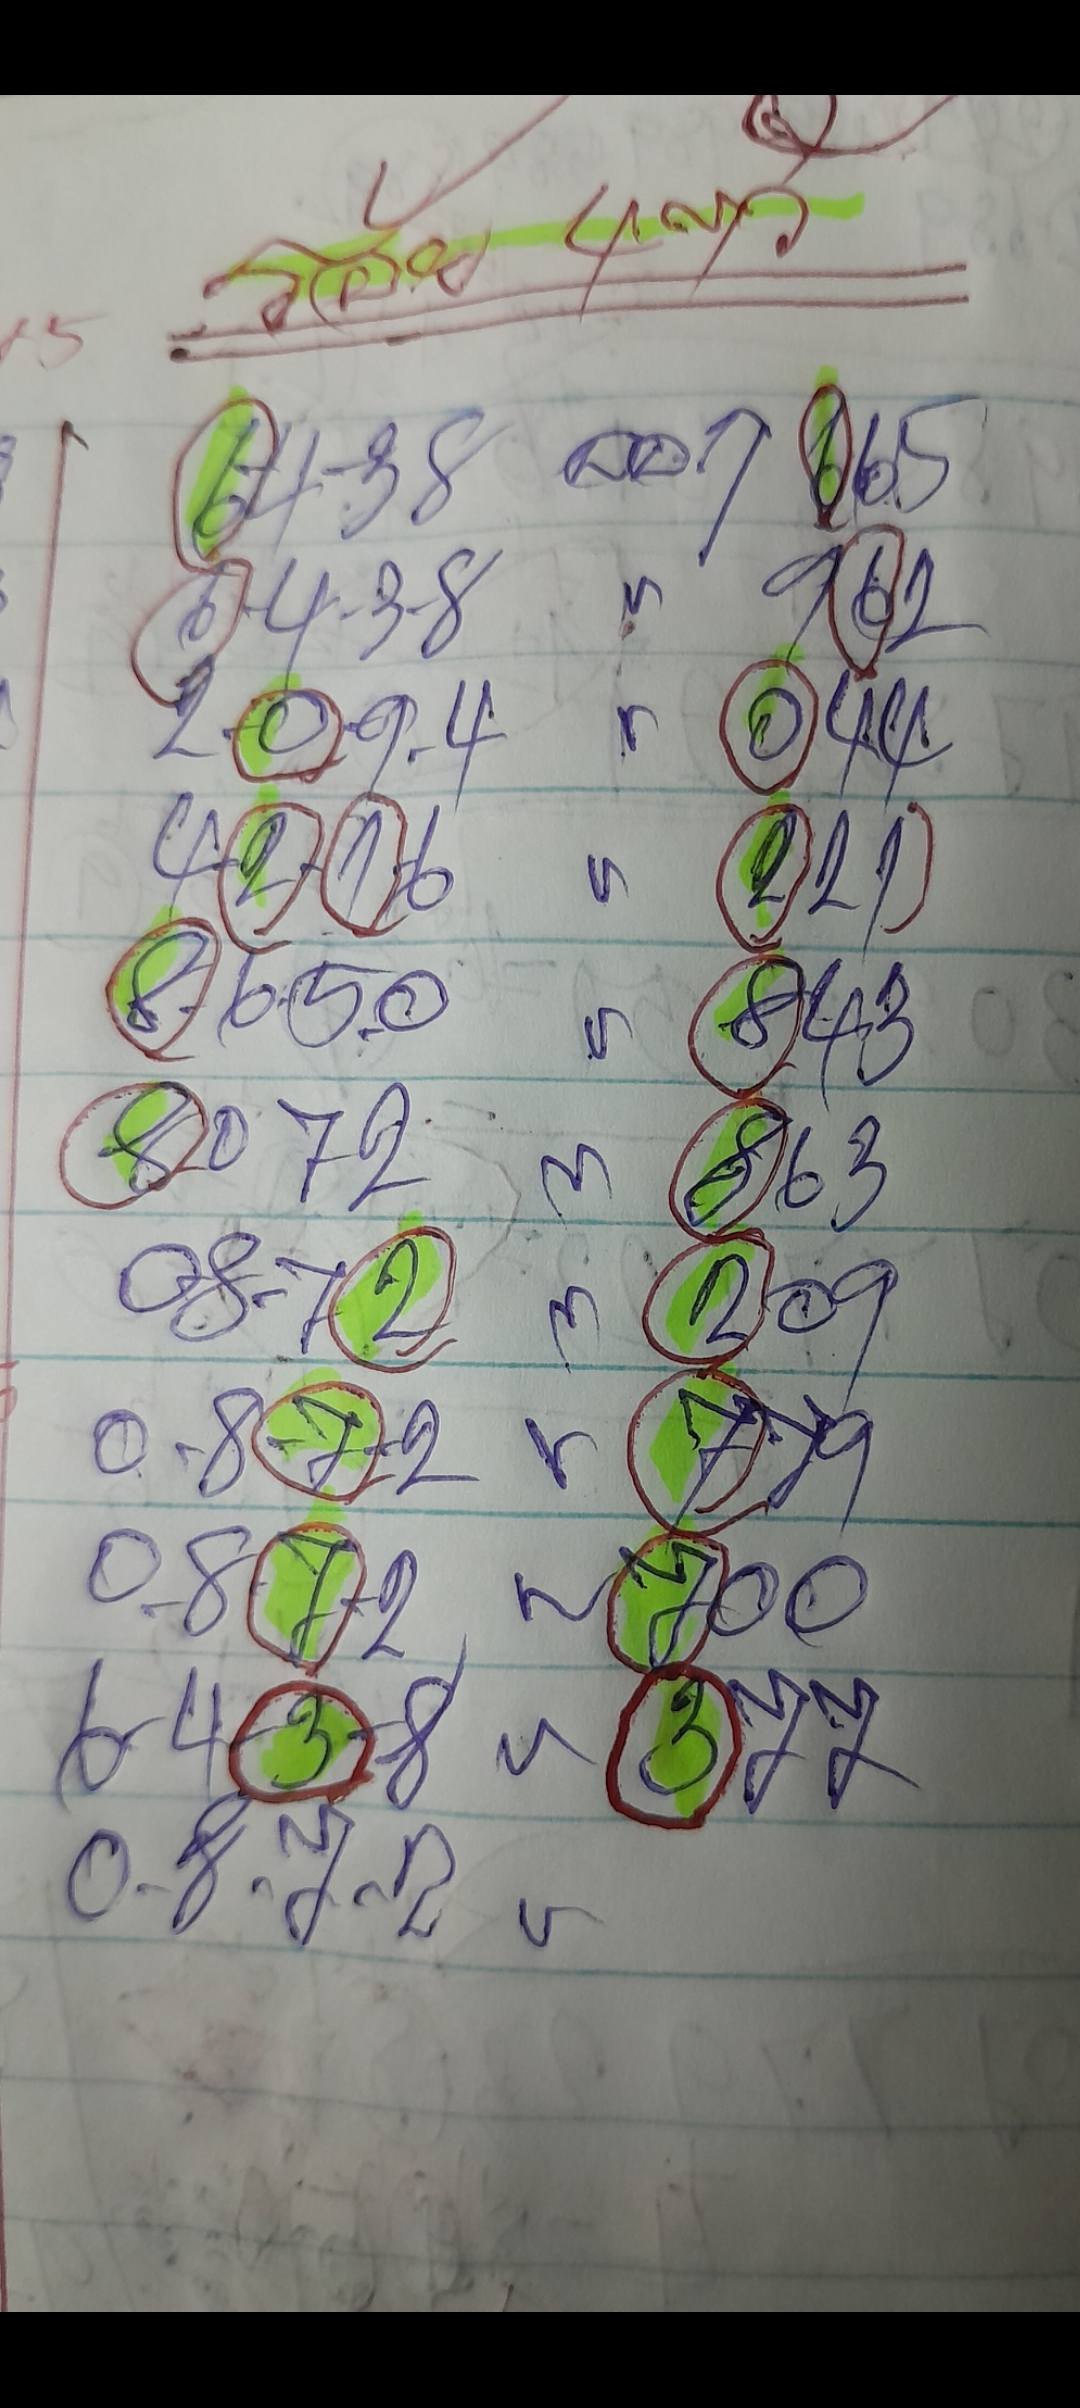 ร้อย 4 ตัว
64-38 ออก 665
6-4-3-8 " 962
2-0-9-4 " 044
4-2-1-6 " 221
8-6-5-0 " 843
8072 " 863
08-72 " 209
0-8-7-2 " 779
0-8-7-2 " 700
6-4-3-8 " 377
0-8-7-2 "